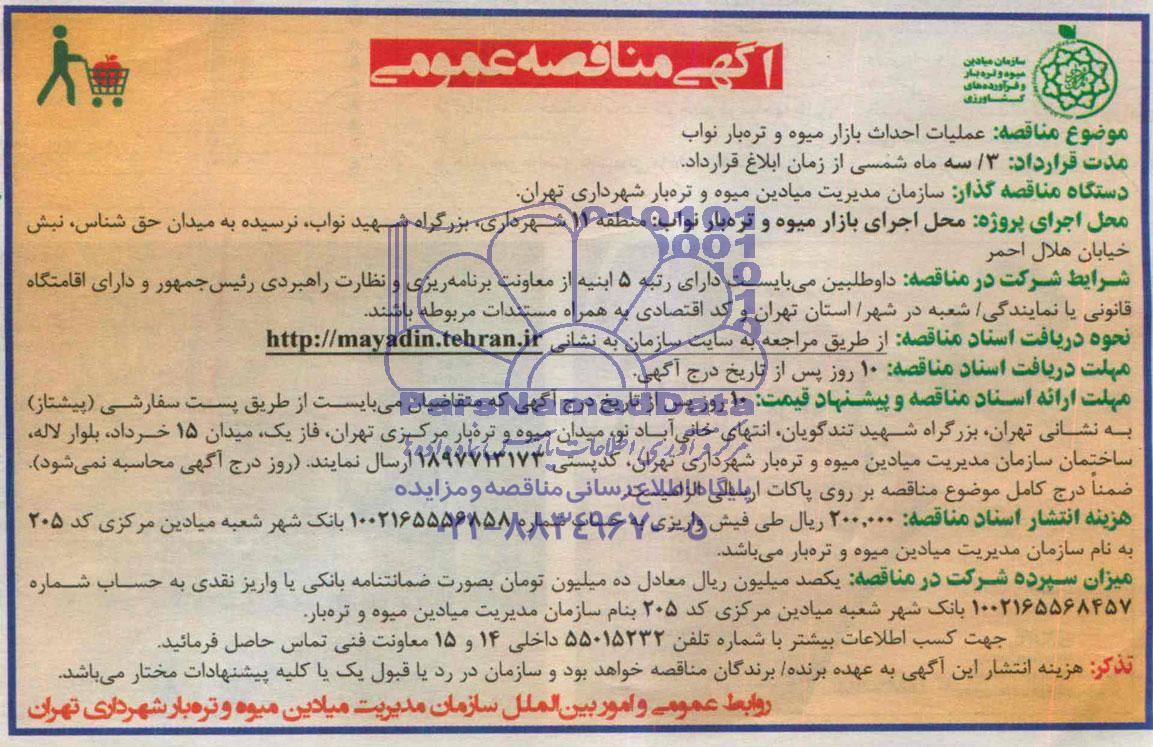 آگهی مناقصه عمومی
سازمان میادین
میوه و تره‌بار
و فرآورده‌های
کشاورزی
موضوع مناقصه: عملیات احداث بازار میوه و تره‌بار نواب
مدت قرارداد: ۳/ سه ماه شمسی از زمان ابلاغ قرارداد.
دستگاه مناقصه گذار: سازمان مدیریت میادین میوه و تره‌بار شهرداری تهران.
محل اجرای پروژه: محل اجرای بازار میوه و تره‌بار نواب: منطقه ۱۱ شهرداری، بزرگراه شهید نواب، نرسیده به میدان حق شناس، نبش
خیابان هلال احمر
شرایط شرکت در مناقصه: داوطلبین می‌بایست دارای رتبه ۵ ابنیه از معاونت برنامه‌ریزی و نظارت راهبردی رئیس‌جمهور و دارای اقامتگاه
قانونی یا نمایندگی/ شعبه در شهر/ استان تهران و کد اقتصادی به همراه مستندات مربوطه باشند.
نحوه دریافت اسناد مناقصه: از طریق مراجعه به سایت سازمان به نشانی http://mayadin.tehran.ir
مهلت دریافت اسناد مناقصه: ۱۰ روز پس از تاریخ درج آگهی.
مهلت ارائه اسناد مناقصه و پیشنهاد قیمت: ۱۰ روز پس از تاریخ درج آگهی که متقاضیان می‌بایست از طریق پست سفارشی (پیشتاز)
به نشانی تهران، بزرگراه شهید تندگویان، انتهای خانی‌آباد نو، میدان میوه و تره‌بار مرکزی تهران، فاز یک، میدان ۱۵ خرداد، بلوار لاله،
ساختمان سازمان مدیریت میادین میوه و تره‌بار شهرداری تهران، کدپستی ۱۸۹۷۷۱۳۱۷۳ ارسال نمایند. (روز درج آگهی محاسبه نمی‌شود).
ضمناً درج کامل موضوع مناقصه بر روی پاکات ارسالی الزامیست.
هزینه انتشار اسناد مناقصه: ۲۰۰,۰۰۰ ریال طی فیش واریزی به حساب شماره ۱۰۰۲۱۶۵۵۵۶۸۵۸ بانک شهر شعبه میادین مرکزی کد ۲۰۵
به نام سازمان مدیریت میادین میوه و تره‌بار می‌باشد.
میزان سپرده شرکت در مناقصه: یکصد میلیون ریال معادل ده میلیون تومان بصورت ضمانتنامه بانکی یا واریز نقدی به حساب شماره
۱۰۰۲۱۶۵۵۶۸۴۵۷ بانک شهر شعبه میادین مرکزی کد ۲۰۵ بنام سازمان مدیریت میادین میوه و تره‌بار.
جهت کسب اطلاعات بیشتر با شماره تلفن ۵۵۰۱۵۲۳۲ داخلی ۱۴ و ۱۵ معاونت فنی تماس حاصل فرمائید.
تذکر: هزینه انتشار این آگهی به عهده برنده/ برندگان مناقصه خواهد بود و سازمان در رد یا قبول یک یا کلیه پیشنهادات مختار می‌باشد.
روابط عمومی و امور بین‌الملل سازمان مدیریت میادین میوه و تره‌بار شهرداری تهران
ParsNamadData
پایگاه اطلاع رسانی مناقصه و مزایده
۰۲۱-۸۸۳۴۹۶۷۰-۵